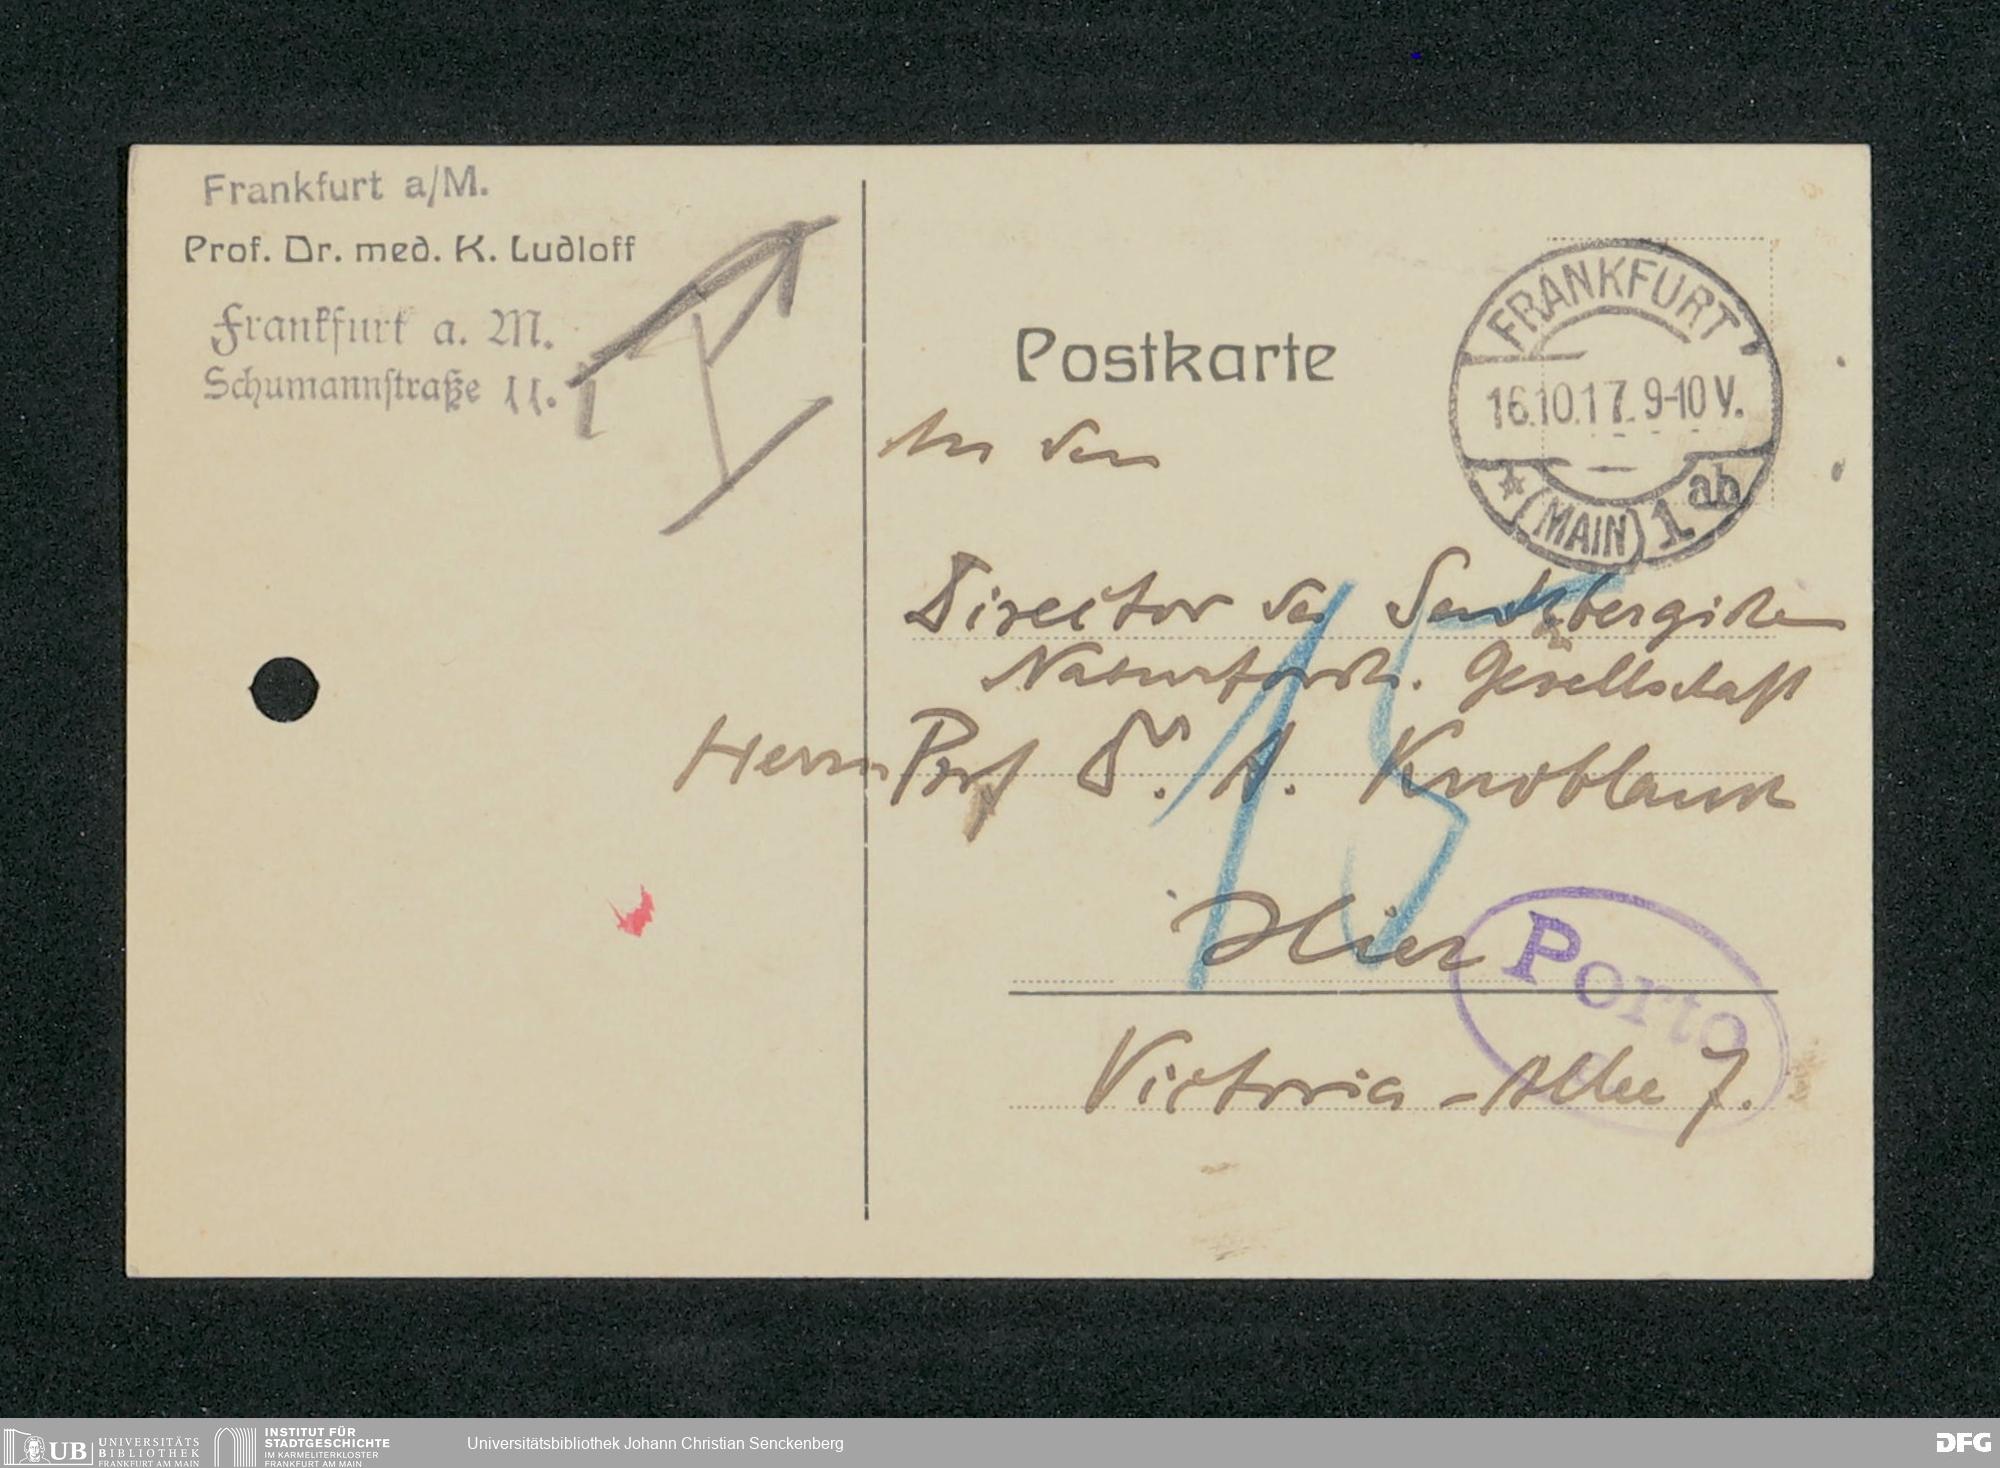 Frankfurt a/M.
Prof. Dr. med. K. Ludloff
Frankfurt a. M.
Schumannstraße 11.
Postkarte
FRANKFURT
16.10.17. 9-10 V.
* (MAIN) 1 ab
An den
Director der Senckbergischen
Naturforsch. Gesellschaft
Herrn Prof Dr. A. Knoblauch
15
Hier
Porto
Victoria-Allee 7.
UB UNIVERSITÄTS
BIBLIOTHEK
FRANKFURT AM MAIN
INSTITUT FÜR
STADTGESCHICHTE
IM KARMELITERKLOSTER
FRANKFURT AM MAIN
Universitätsbibliothek Johann Christian Senckenberg
DFG